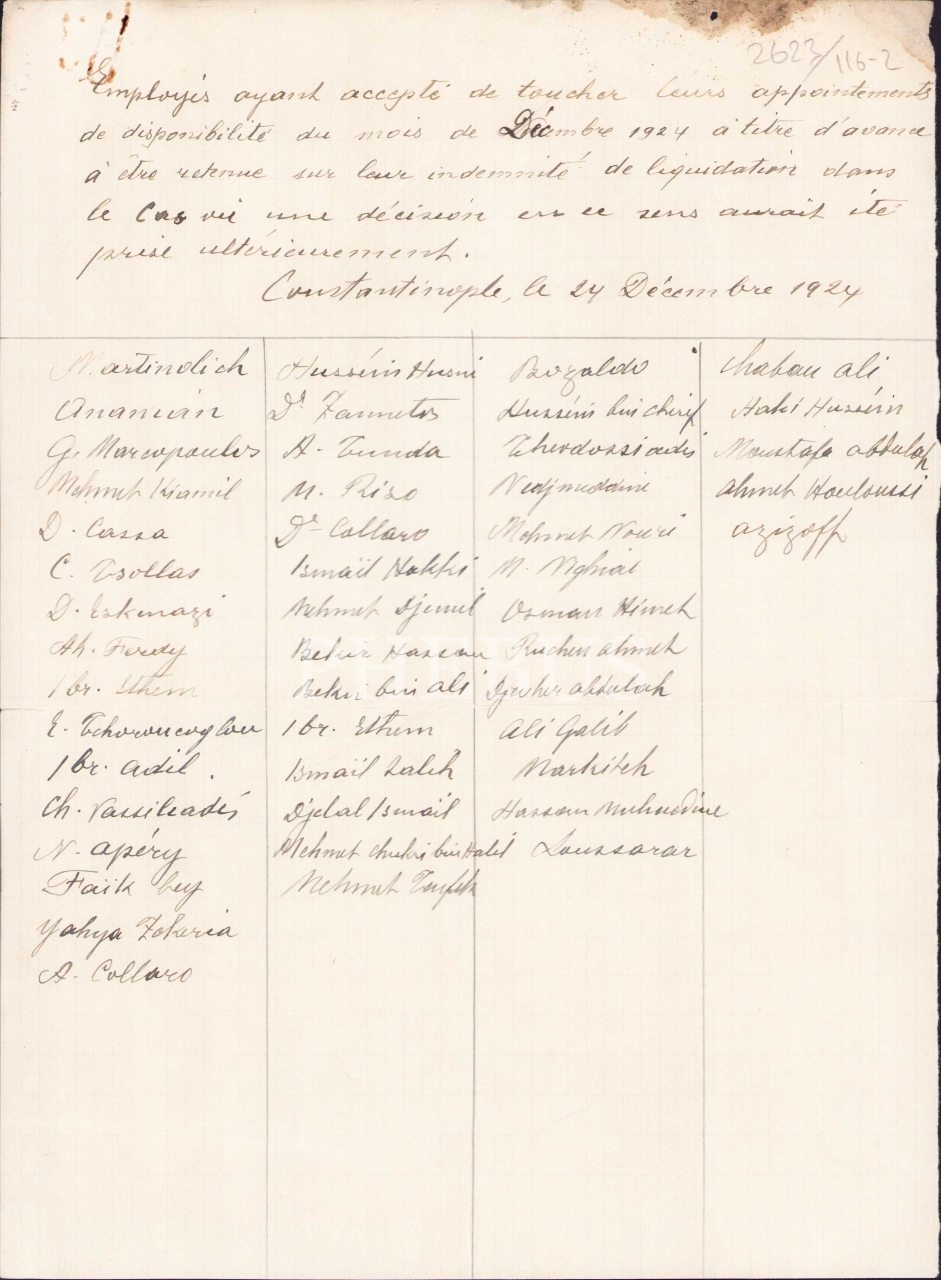 2623/116-2
Employés ayant accepté de toucher leurs appointements
de disponibilité du mois de Décembre 1924 à titre d'avance
à être retenue sur leur indemnité de liquidation dans
le Cas où une décision en ce sens aurait été
prise ultérieurement.
Constantinople, le 24 Décembre 1924
Martindich
Ananian
G. Marcopoulos
Mehmet Kiamil
D. Cassa
C. Tsollas
D. Eskinazi
Ah. Ferdy
Ibr. Ethem
E. Tchoroucoglou
Ibr. Adil.
Ch. Vassiliadis
N. Apéry
Faïk bey
Yahya Zekeria
A. Collaro
Husséin Husni
Dr Zannetos
A. Tunda
M. Rizo
Dr Collaro
Ismaïl Hakki
Mehmet Djemil
Bekir Hassan
Bekir bin Ali
Ibr. Ethem
Ismaïl Salih
Djelal Ismaïl
Mehmet Chukri bin Halil
Mehmet Tewfik
Bozaldo
Husséin bin Chérif
Théodossiadis
Nedjmeddine
Mehmet Nouri
N.
Osman Himet
Ruchen Ahmet
Djevher Abdulah
Ali Galib
Markitch
Hassan Muhuedine
Loussarar
Chaban Ali
Haki Husséin
Moustafa Abdulah
Ahmet Houloussi
Azizoff